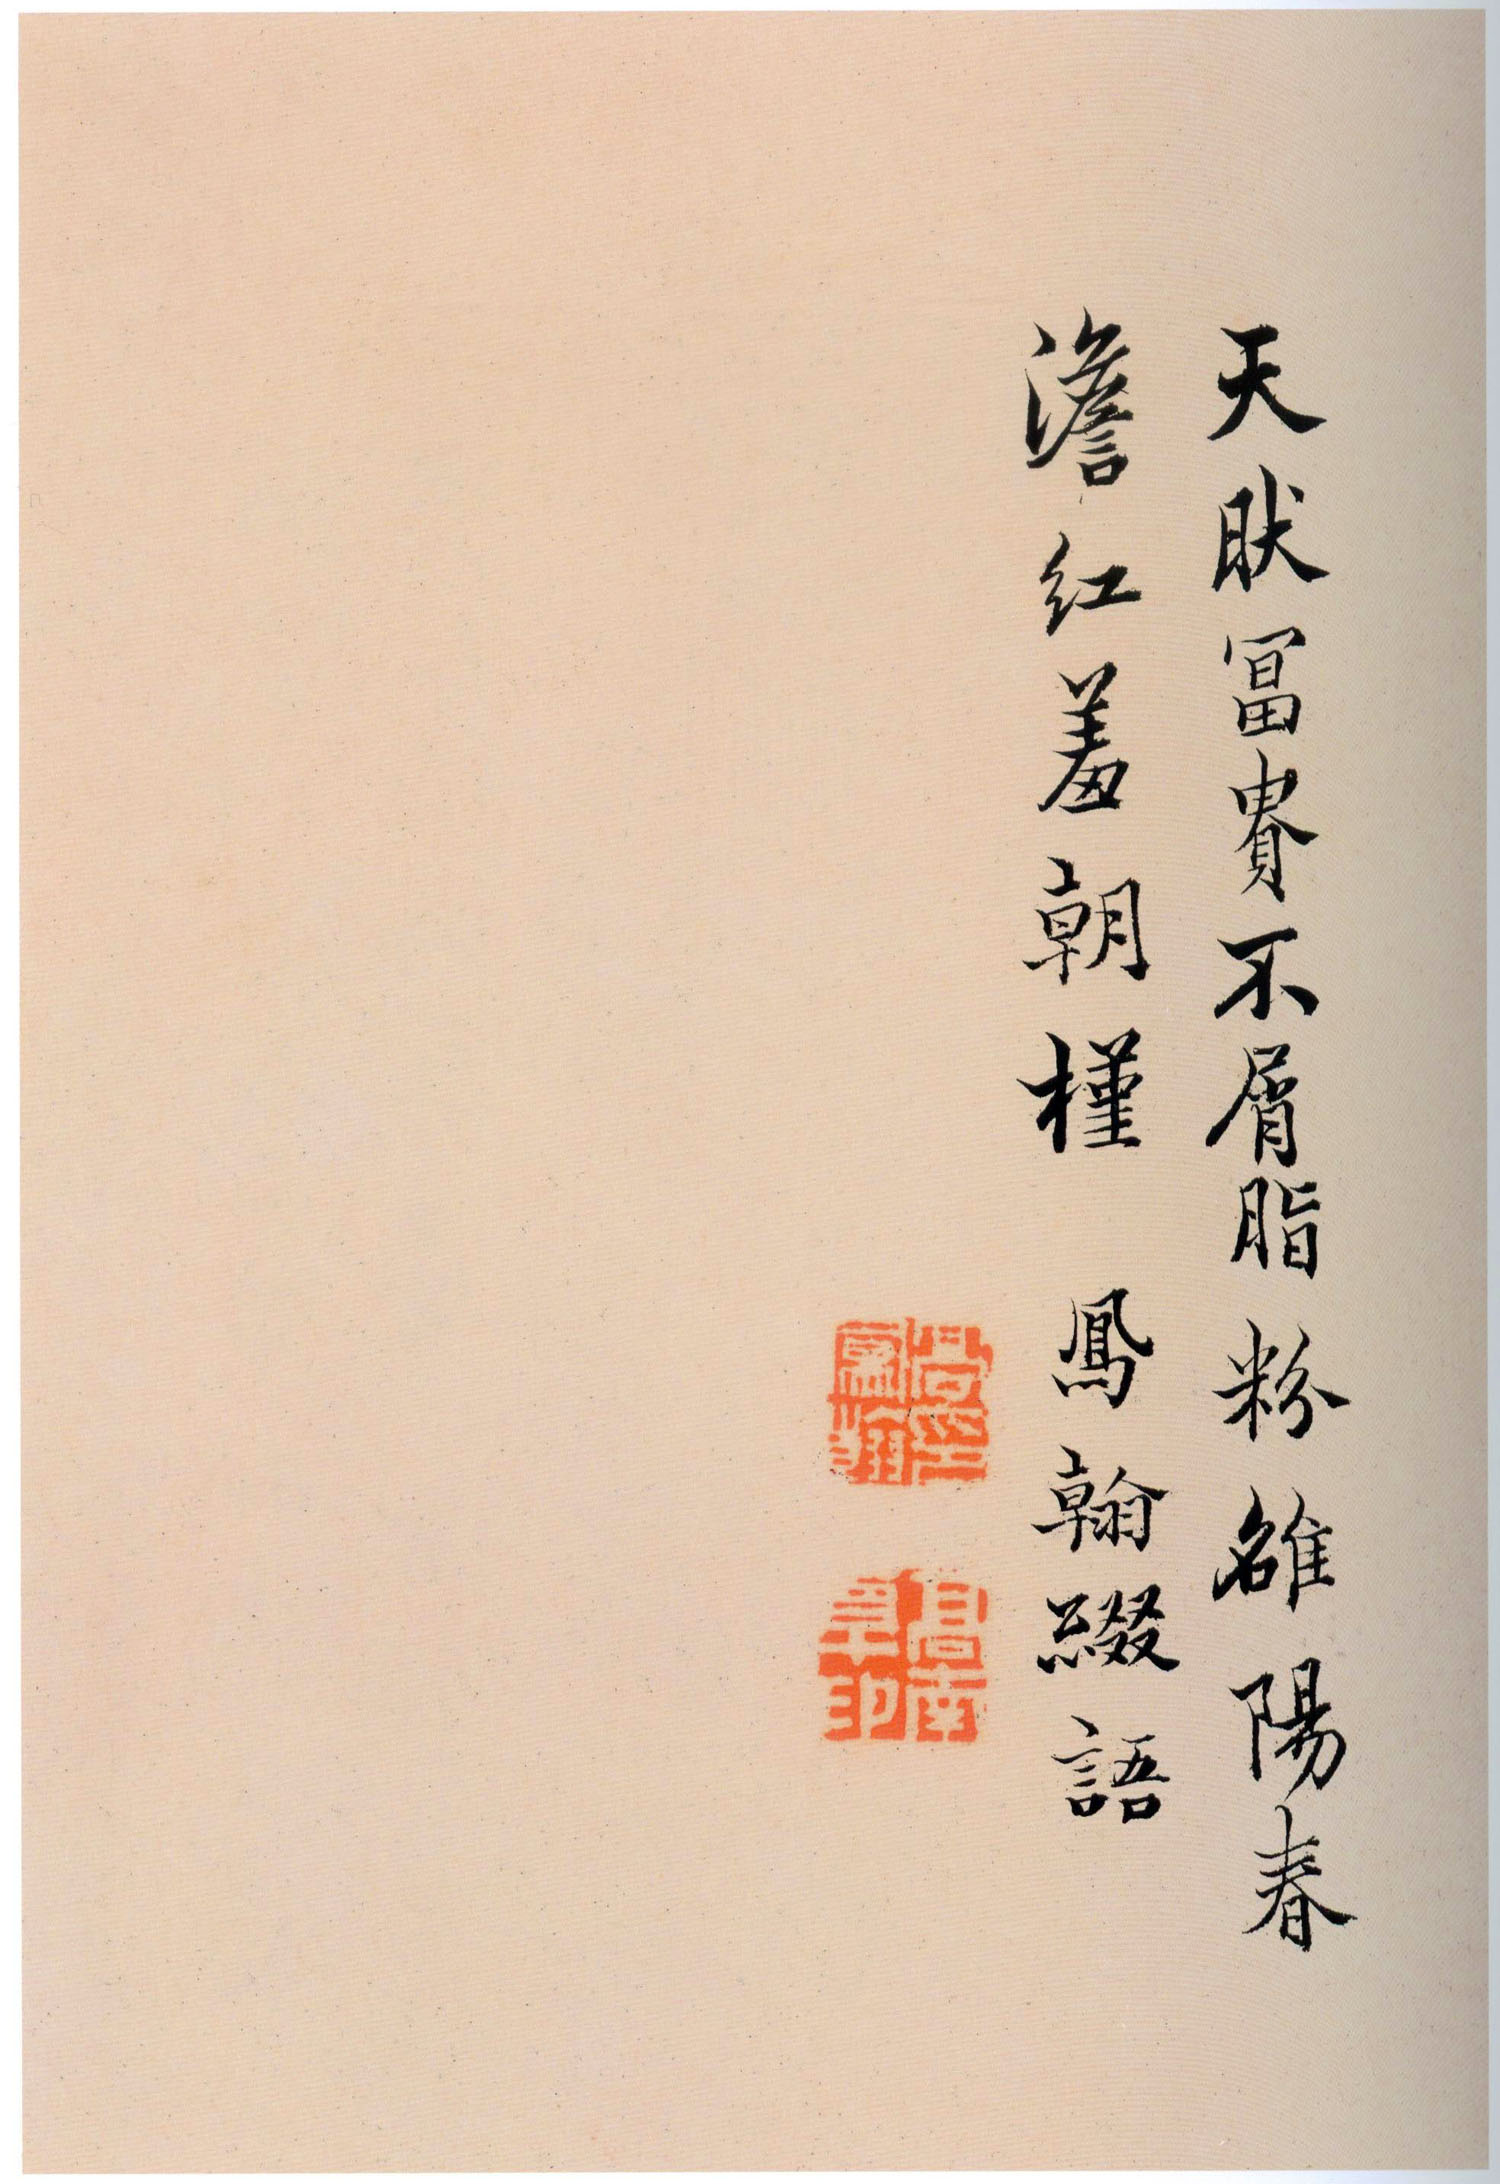 天然冨貴不屑脂粉雒陽春
澹紅羞朝槿　鳳翰綴語